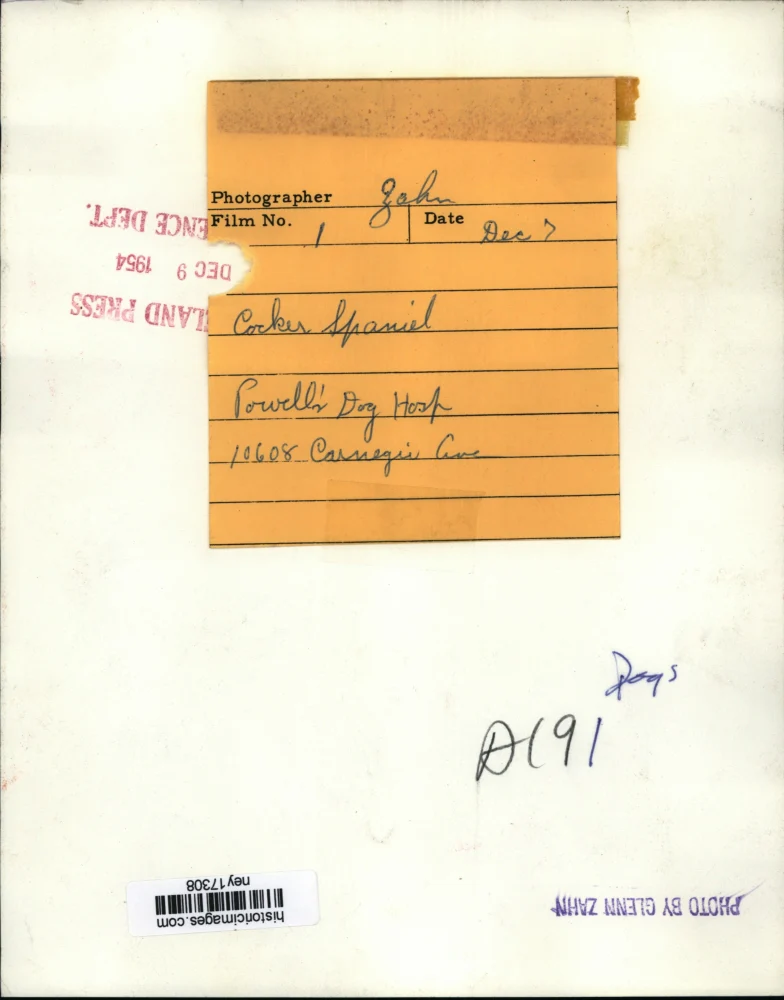 Photographer Zahn
Film No. 1 Date Dec 7
Cocker Spaniel
Powell's Dog Hosp
10608 Carnegie Ave
ENCE DEPT.
DEC 9 1954
LAND PRESS
Dogs
D191
historicimages.com
ney17308
PHOTO BY GLENN ZAHN